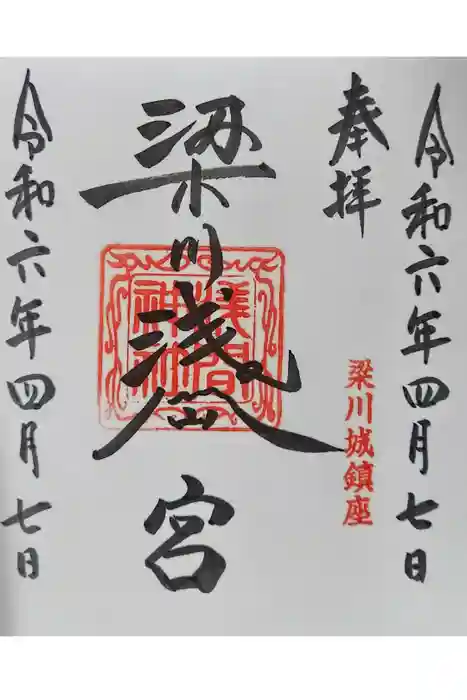 令和六年四月七日
奉拝
梁川城鎮座
梁川浅間宮
浅間神社
令和六年四月七日